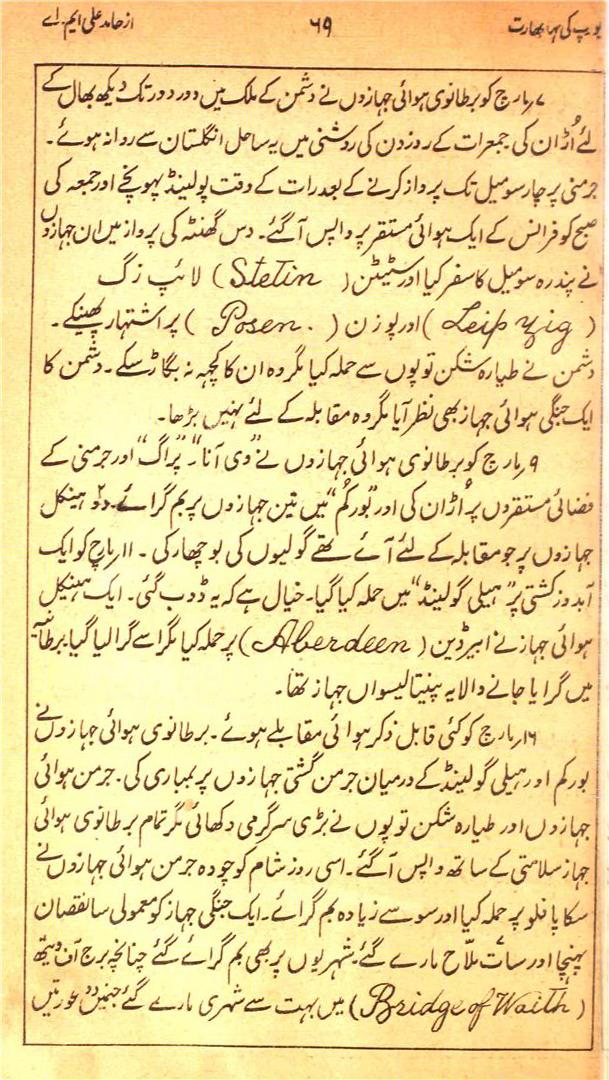 یورپ کی مہابھارت ۶۹ از حامد علی ایم۔ اے
۷ مارچ کو برطانوی ہوائی جہازوں نے دشمن کے ملک میں دور دور تک دیکھ بھال کے
لئے اُڑان کی۔ جمعرات کے روز دن کی روشنی میں یہ ساحل انگلستان سے روانہ ہوئے۔
جرمنی پر چار سو میل تک پرواز کرنے کے بعد رات کے وقت پولینڈ پہونچے اور جمعہ کی
صبح کو فرانس کے ایک ہوائی مستقر پر واپس آگئے۔ دس گھنٹہ کی پرواز میں ان جہازوں
نے پندرہ سو میل کا سفر کیا اور سٹیٹن (Stetin) لائپ زگ
(Leipzig) اور پوزن (Posen.) پر اشتہار پھینکے۔
دشمن نے طیارہ شکن توپوں سے حملہ کیا مگر وہ ان کا کچھ نہ بگاڑ سکے۔ دشمن کا
ایک جنگی ہوائی جہاز بھی نظر آیا مگر وہ مقابلہ کے لئے نہیں بڑھا۔
۹ مارچ کو برطانوی ہوائی جہازوں نے "وی آنا"۔ "پراگ" اور جرمنی کے
فضائی مستقروں پر اُڑان کی اور "بورکُم" میں تین جہازوں پر بم گرائے۔ دو ہینکل
جہازوں پر جو مقابلہ کے لئے آئے تھے گولیوں کی بوچھار کی۔ ۱۱ مارچ کو ایک
آبدوز کشتی پر "ہیلی گولینڈ" میں حملہ کیا گیا۔ خیال ہے کہ یہ ڈوب گئی۔ ایک ہینکل
ہوائی جہاز نے ابیرڈین (Aberdeen) پر حملہ کیا مگر اسے گرا لیا گیا۔ برطانیہ
میں گرایا جانے والا یہ پینتالیسواں جہاز تھا۔
۱۶ مارچ کو کئی قابل ذکر ہوائی مقابلے ہوئے۔ برطانوی ہوائی جہازوں نے
بورکم اور ہیلی گولینڈ کے درمیان جرمن گشتی جہازوں پر بمباری کی۔ جرمن ہوائی
جہازوں اور طیارہ شکن توپوں نے بڑی سرگرمی دکھائی مگر تمام برطانوی ہوائی
جہاز سلامتی کے ساتھ واپس آگئے۔ اسی روز شام کو چودہ جرمن ہوائی جہازوں نے
سکاپا فلو پر حملہ کیا اور سو سے زیادہ بم گرائے۔ ایک جنگی جہاز کو معمولی سا نقصان
پہنچا اور سات ملّاح مارے گئے۔ شہریوں پر بھی بم گرائے گئے چنانچہ برج آف ویتھ
(Bridge of Waith) میں بہت سے شہری مارے گئے جنمیں دو عورتیں